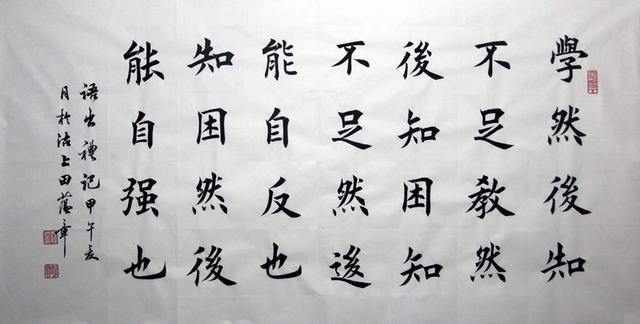 學然後知
不足教然
後知困知
不足然後
能自反也
知困然後
能自强也
語出禮記甲午夏
月於沽上田蘊章